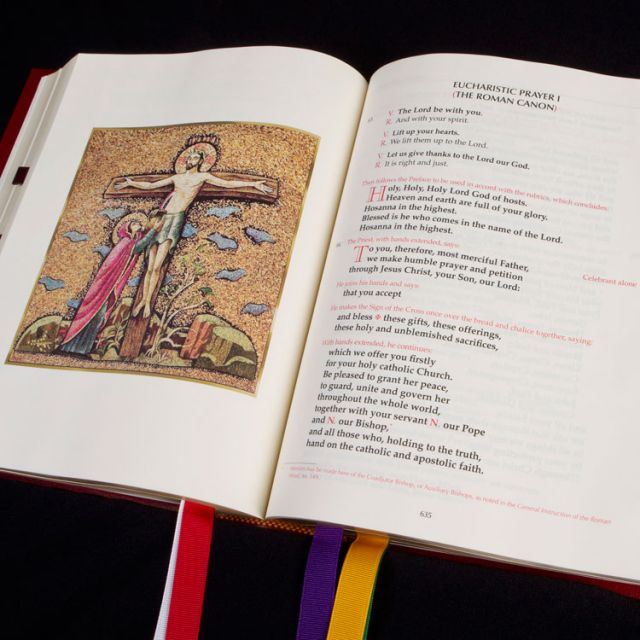 EUCHARISTIC PRAYER I
(THE ROMAN CANON)
V. The Lord be with you.
R. And with your spirit.
V. Lift up your hearts.
R. We lift them up to the Lord.
V. Let us give thanks to the Lord our God.
R. It is right and just.
Then follows the Preface to be used in accord with the rubrics, which concludes:
Holy, Holy, Holy Lord God of hosts.
Heaven and earth are full of your glory.
Hosanna in the highest.
Blessed is he who comes in the name of the Lord.
Hosanna in the highest.
The Priest, with hands extended, says:
To you, therefore, most merciful Father,
we make humble prayer and petition
through Jesus Christ, your Son, our Lord:
Celebrant alone
He joins his hands and says:
that you accept
He makes the Sign of the Cross once over the bread and chalice together, saying:
and bless ✠ these gifts, these offerings,
these holy and unblemished sacrifices,
With hands extended, he continues:
which we offer you firstly
for your holy catholic Church.
Be pleased to grant her peace,
to guard, unite and govern her
throughout the whole world,
together with your servant N. our Pope
and N. our Bishop,
and all those who, holding to the truth,
hand on the catholic and apostolic faith.
Mention may be made here of the Coadjutor Bishop, or Auxiliary Bishops, as noted in the General Instruction of the Roman
Missal, no. 149.
635